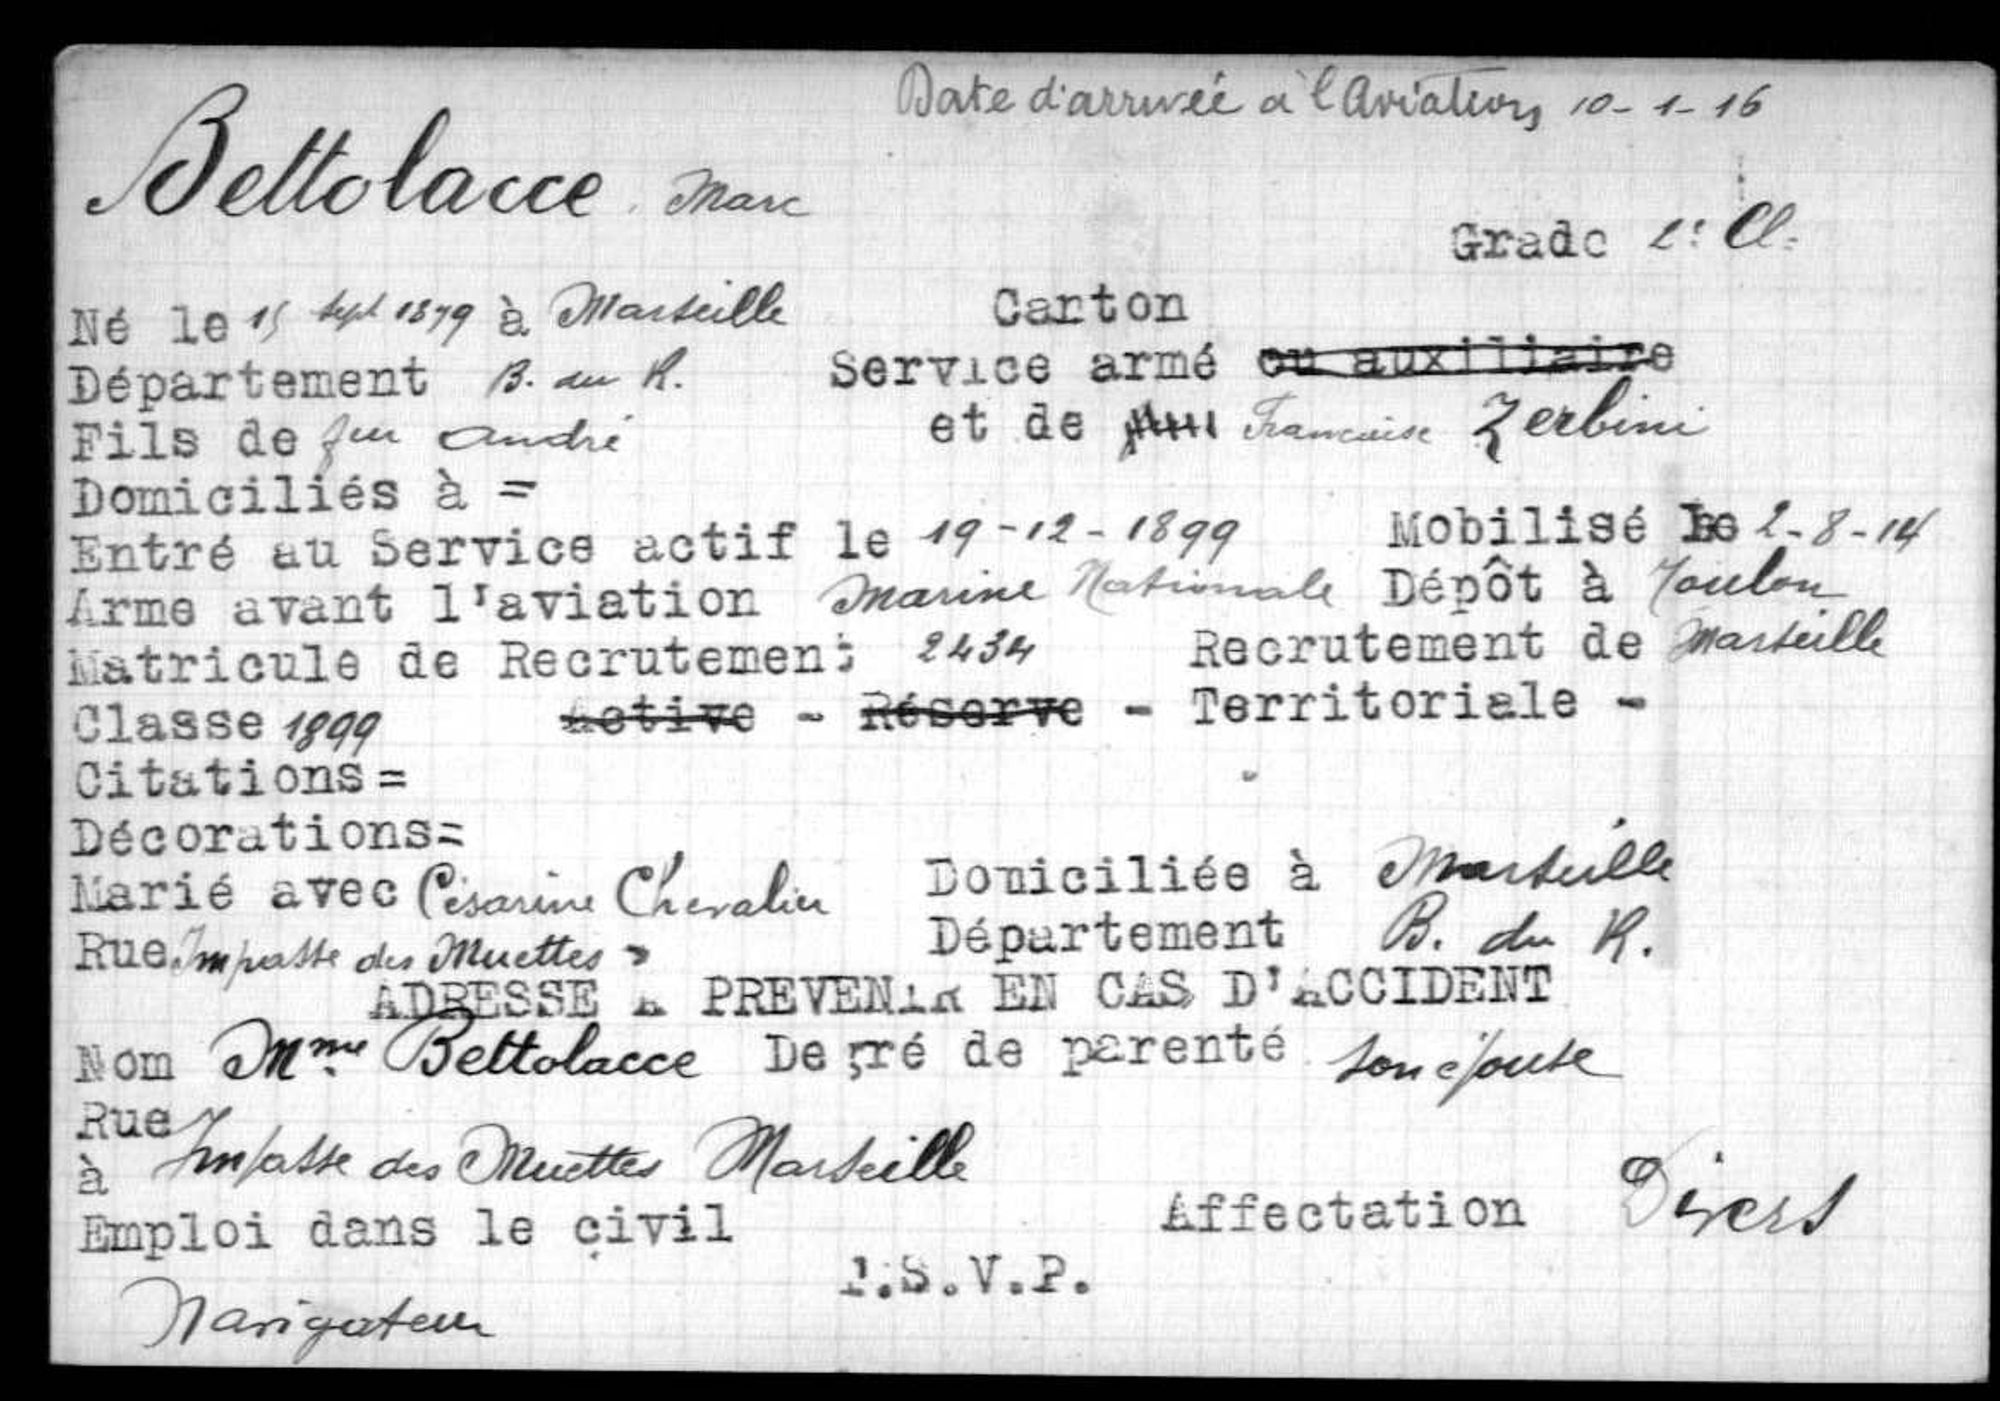 Date d'arrivée à l'Aviation 10-1-16
Bettolacce Marc
Grade 2e Cl.
Né le 15 Sept 1879 à Marseille Carton
Département B. du R. Service armé ou auxiliaire
Fils de feu André et de Francoise Zerbini
Domiciliés à =
Entré au Service actif le 19-12-1899 Mobilisé le 2-8-14
Arme avant l'aviation Marine Nationale Dépôt à Toulon
Matricule de Recrutement 2434 Recrutement de Marseille
Classe 1899 Active - Réserve - Territoriale -
Citations =
Décorations =
Marié avec Césarine Chevalier Domiciliée à Marseille
Rue Impasse des Muettes Département B. du R.
ADRESSE A PREVENIR EN CAS D'ACCIDENT
Nom Mme Bettolacce Degré de parenté son épouse
Rue
à Impasse des Muettes Marseille
Emploi dans le civil Affectation Divers
P.S.V.P.
Navigateur